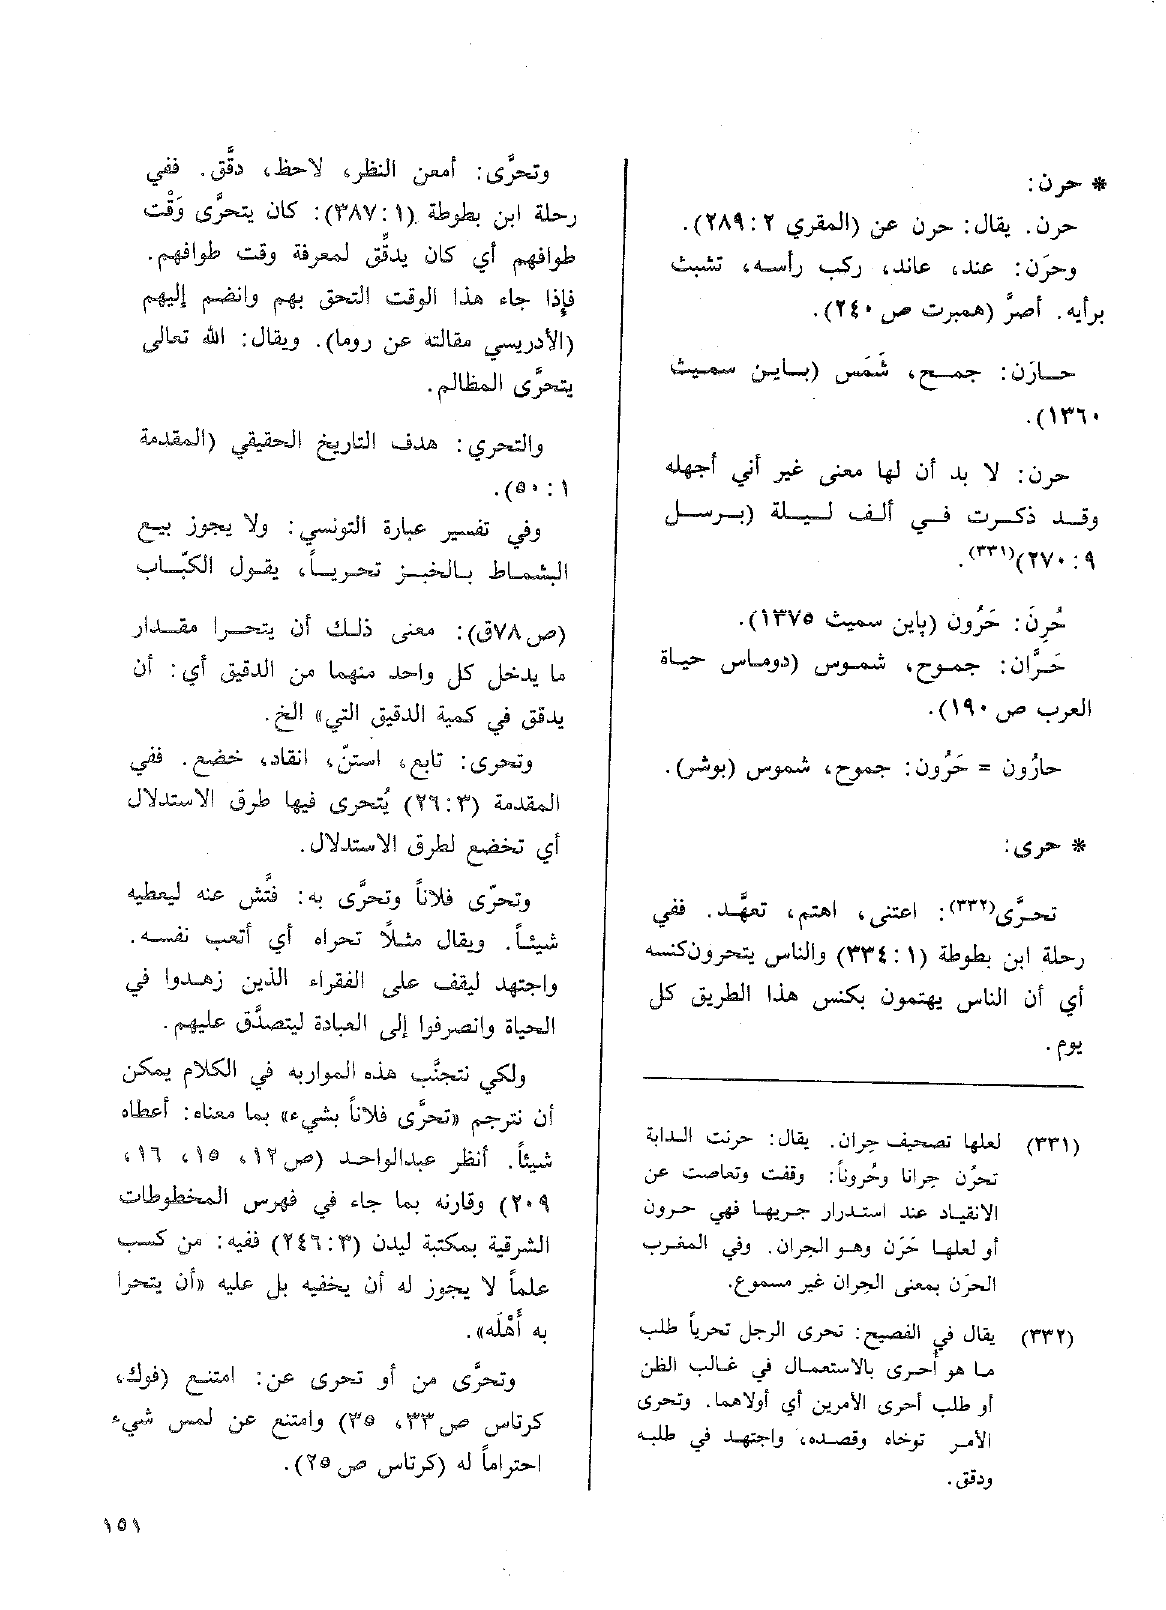 * حرن:
حرن. يقال: حرن عن (المقري ٢: ٢٨٩).
وحرَن: عند، عاند، ركب رأسه، تشبث
برأيه. أصرَّ (همبرت ص ٢٤٠).
حازَن: جمح، شَمَس (باين سميث
١٣٦٠).
حرن: لا بد أن لها معنى غير أني أجهله
وقد ذكرت في ألف ليلة (برسل
٩: ٢٧٠)(٣٣١).
حُرِنَ: حَرُون (باين سميث ١٣٧٥).
حَرَّان: جموح، شموس (دوماس حياة
العرب ص ١٩٠).
حارُون = حَرُون: جموح، شموس (بوشر).
* حرى:
تحرَّى(٣٣٢): اعتنى، اهتم، تعهَّد. ففي
رحلة ابن بطوطة (١: ٣٣٤) والناس يتحرون كنسه
أي أن الناس يهتمون بكنس هذا الطريق كل
يوم.
(٣٣١) لعلها تصحيف حِران. يقال: حرنت الدابة
تحرُن حِرانا وحُروناً: وقفت وتعاصت عن
الانقياد عند استدرار جريها فهي حرون
أو لعلها حَرَن وهو الحِران. وفي المغرب
الحرَن بمعنى الحِران غير مسموع.
(٣٣٢) يقال في الفصيح: تحرى الرجل تحرياً طلب
ما هو أحرى بالاستعمال في غالب الظن
أو طلب أحرى الأمرين أي أولاهما. وتحرى
الأمر توخاه وقصده، واجتهد في طلبه
ودقق.
وتحرَّى: أمعن النظر، لاحظ، دقَّق. ففي
رحلة ابن بطوطة (١: ٣٨٧): كان يتحرَّى وَقْت
طوافهم أي كان يدقِّق لمعرفة وقت طوافهم.
فإذا جاء هذا الوقت التحق بهم وانضم إليهم
(الأدريسي مقالته عن روما). ويقال: الله تعالى
يتحرَّى المظالم.
والتحري: هدف التاريخ الحقيقي (المقدمة
١: ٥٠).
وفي تفسير عبارة التونسي: ولا يجوز بيع
البشماط بالخبز تحرياً، يقول الكبّاب
(ص٧٨ق): معنى ذلك أن يتحرا مقدار
ما يدخل كل واحد منهما من الدقيق أي: أن
يدقق في كمية الدقيق التي» الخ.
وتحرى: تابع، استنّ، انقاد، خضع. ففي
المقدمة (٣: ٢٦) يُتحرى فيها طرق الاستدلال
أي تخضع لطرق الاستدلال.
وتحرّى فلاناً وتحرَّى به: فتَّش عنه ليعطيه
شيئاً. ويقال مثلاً تحراه أي أتعب نفسه.
واجتهد ليقف على الفقراء الذين زهدوا في
الحياة وانصرفوا إلى العبادة ليتصدَّق عليهم.
ولكي نتجنَّب هذه المواربه في الكلام يمكن
أن نترجم «تحرَّى فلاناً بشيء» بما معناه: أعطاه
شيئاً. أنظر عبدالواحد (ص١٢، ١٥، ١٦،
٢٠٩) وقارنه بما جاء في فهرس المخطوطات
الشرقية بمكتبة ليدن (٣: ٢٤٦) ففيه: من كسب
علماً لا يجوز له أن يخفيه بل عليه «أن يتحرا
به أَهْلَه».
وتحرَّى من أو تحرى عن: امتنع (فوك،
كرتاس ص٣٣، ٣٥) وامتنع عن لمس شيء
احتراماً له (كرتاس ص٢٥).
١٥١